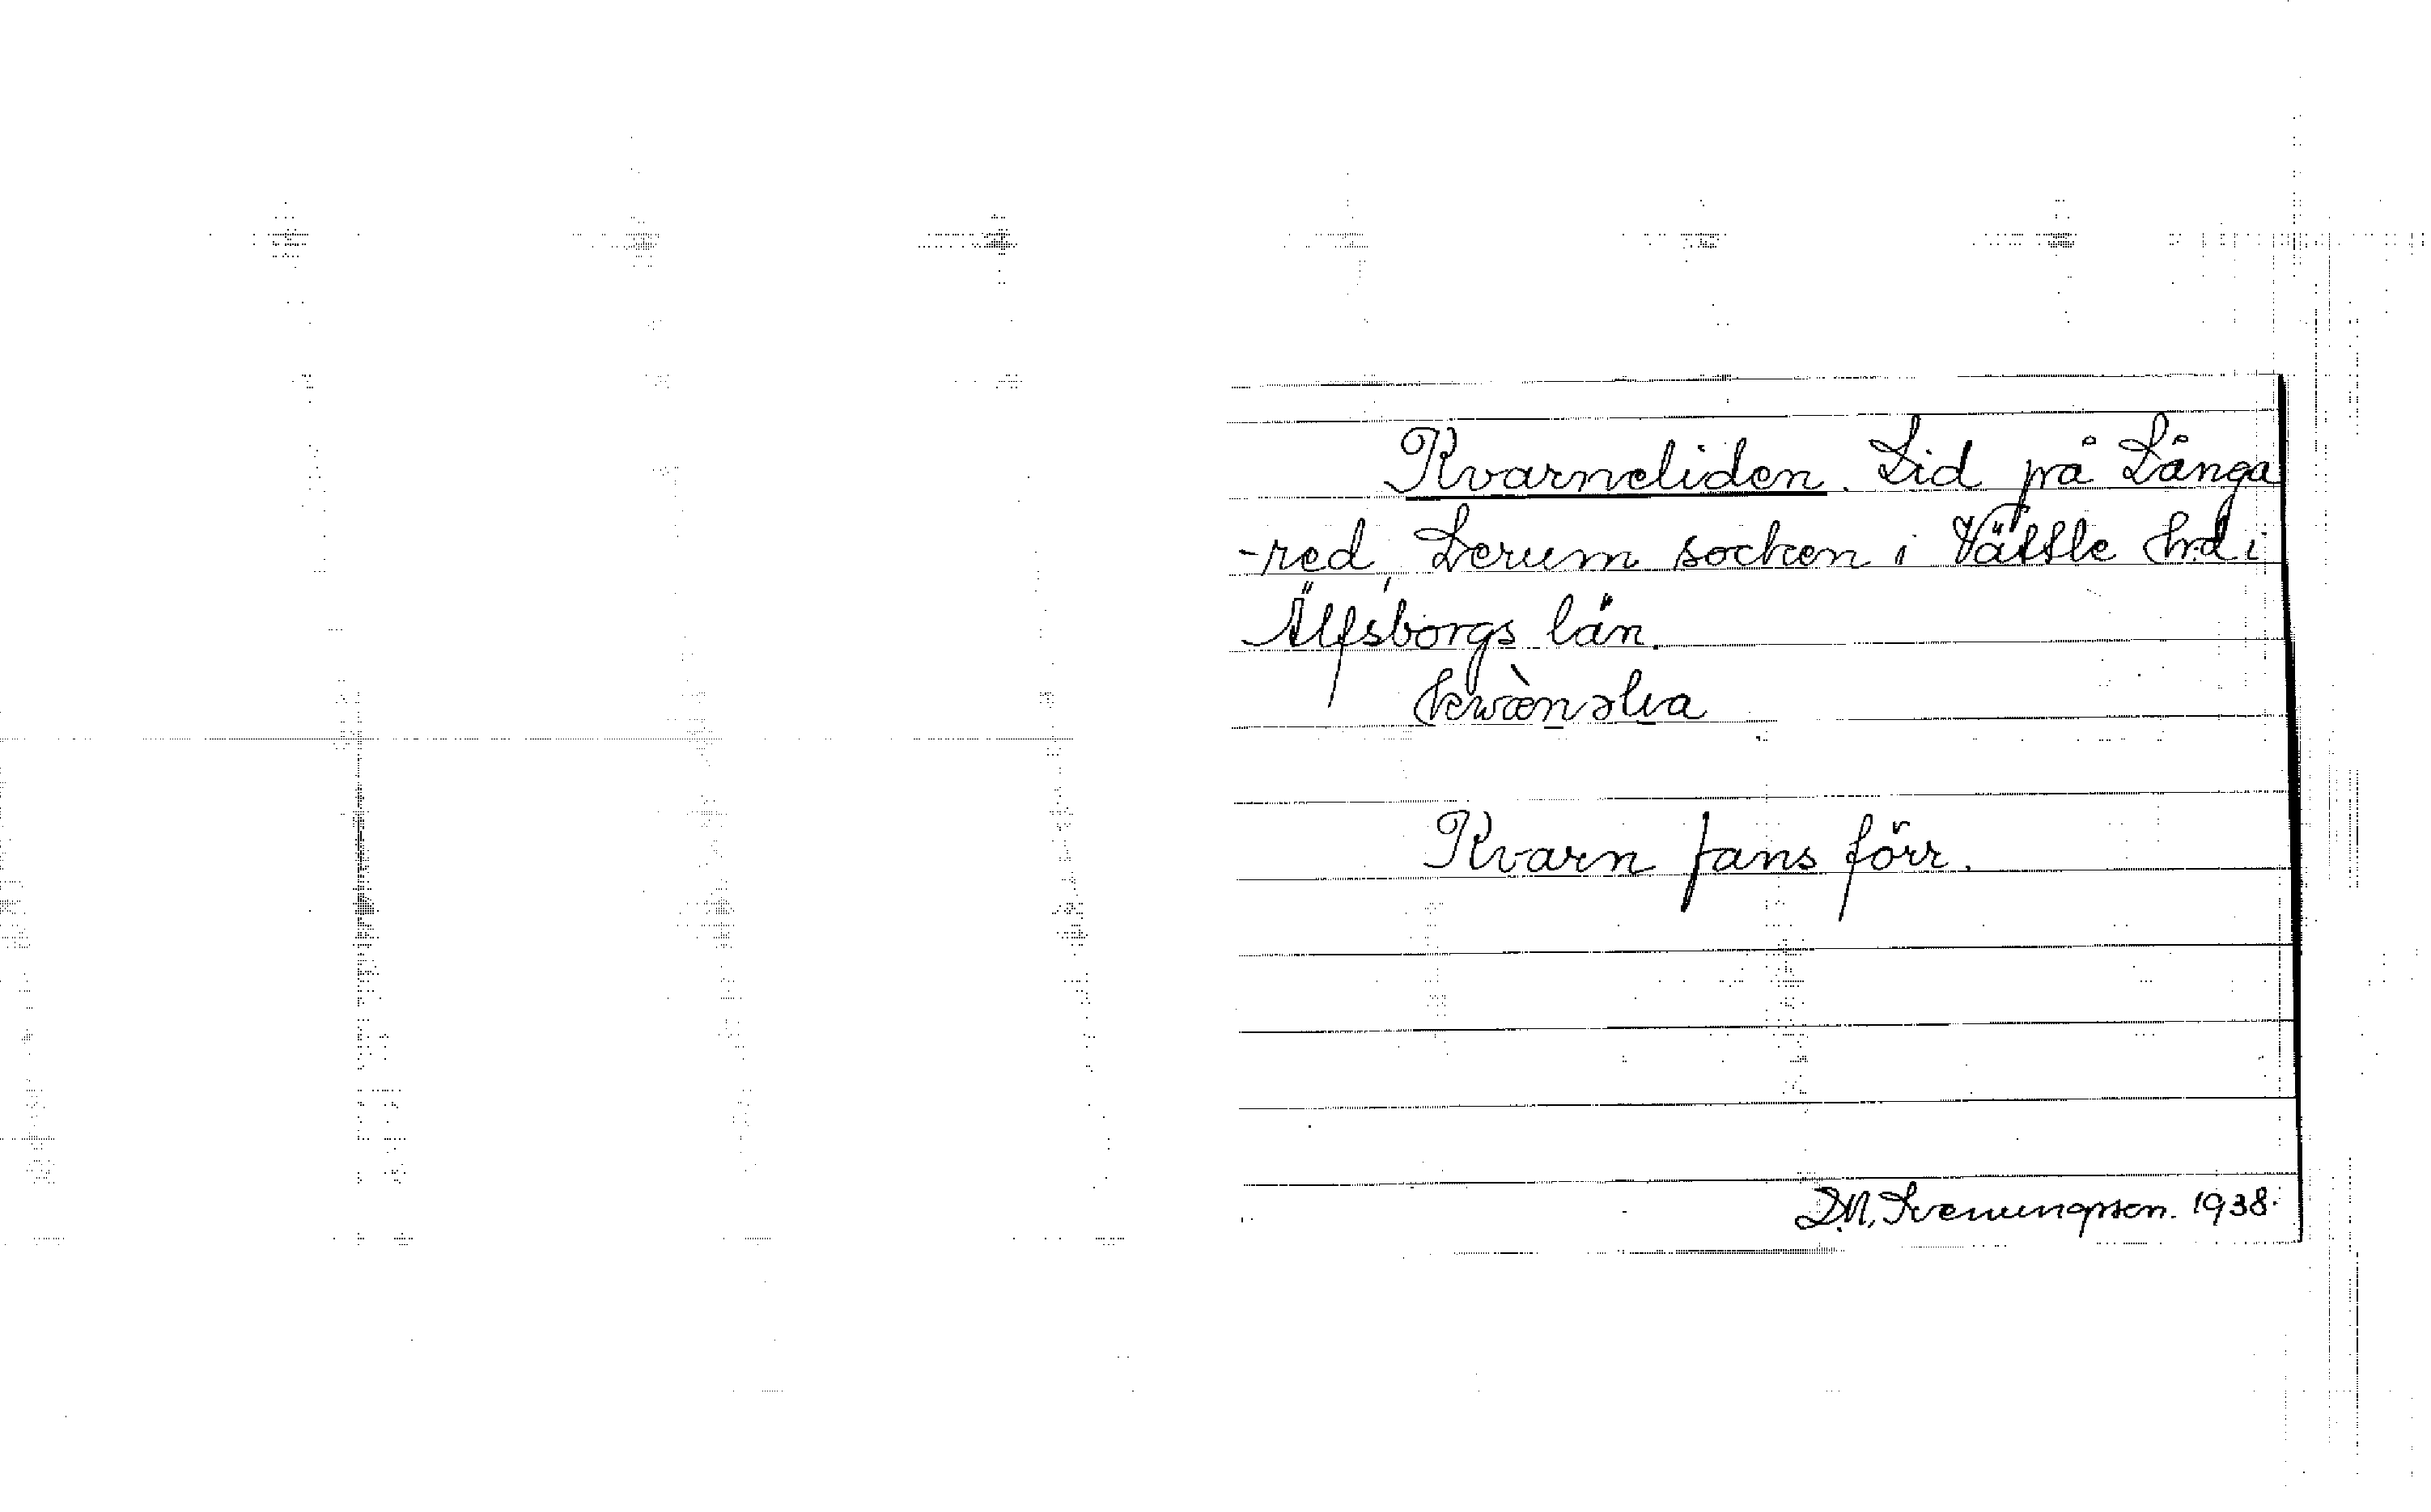 Kvarneliden. Lid på Långa
-red, Lerum socken i Vättle hrd i
Älfsborgs län.
Kvarn fans förr.
D.N. Svenungsson. 1938.